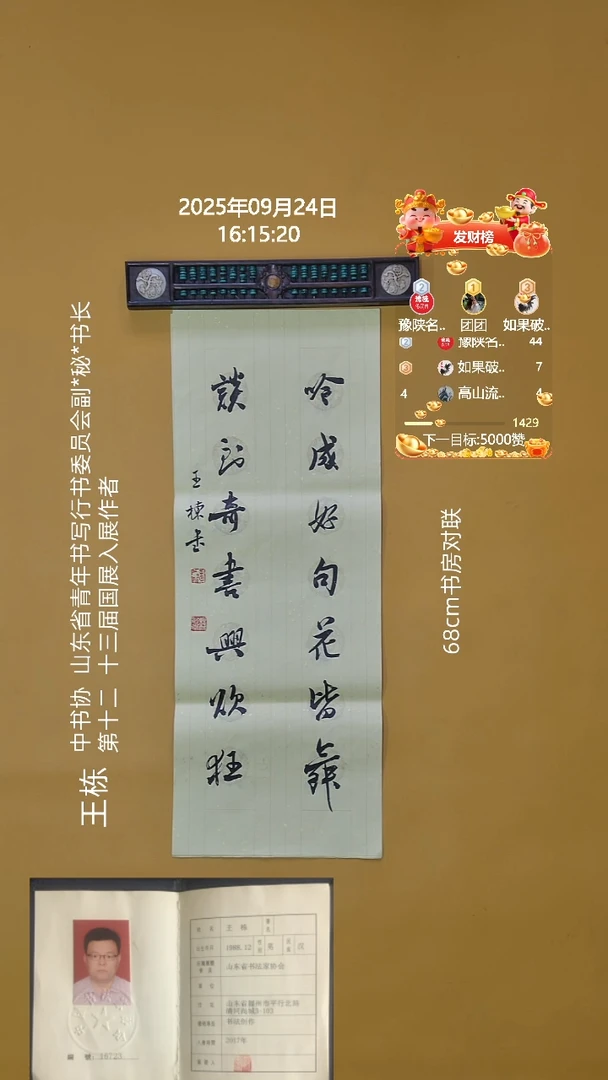 2025年09月24日
16:15:20
发财榜
豫陕名..
团团
如果破..
2
豫陕名..
44
3
如果破..
7
4
高山流..
4
1429
下一目标:5000赞
吟成好句花皆舞
談到奇書興欲狂
王棟書
68cm书房对联
王栋
中书协 山东省青年书写行书委员会副*秘*书长
第十二 十三届国展入展作者
王栋
1988.12
男
汉
山东省书法家协会
书法创作
2017年